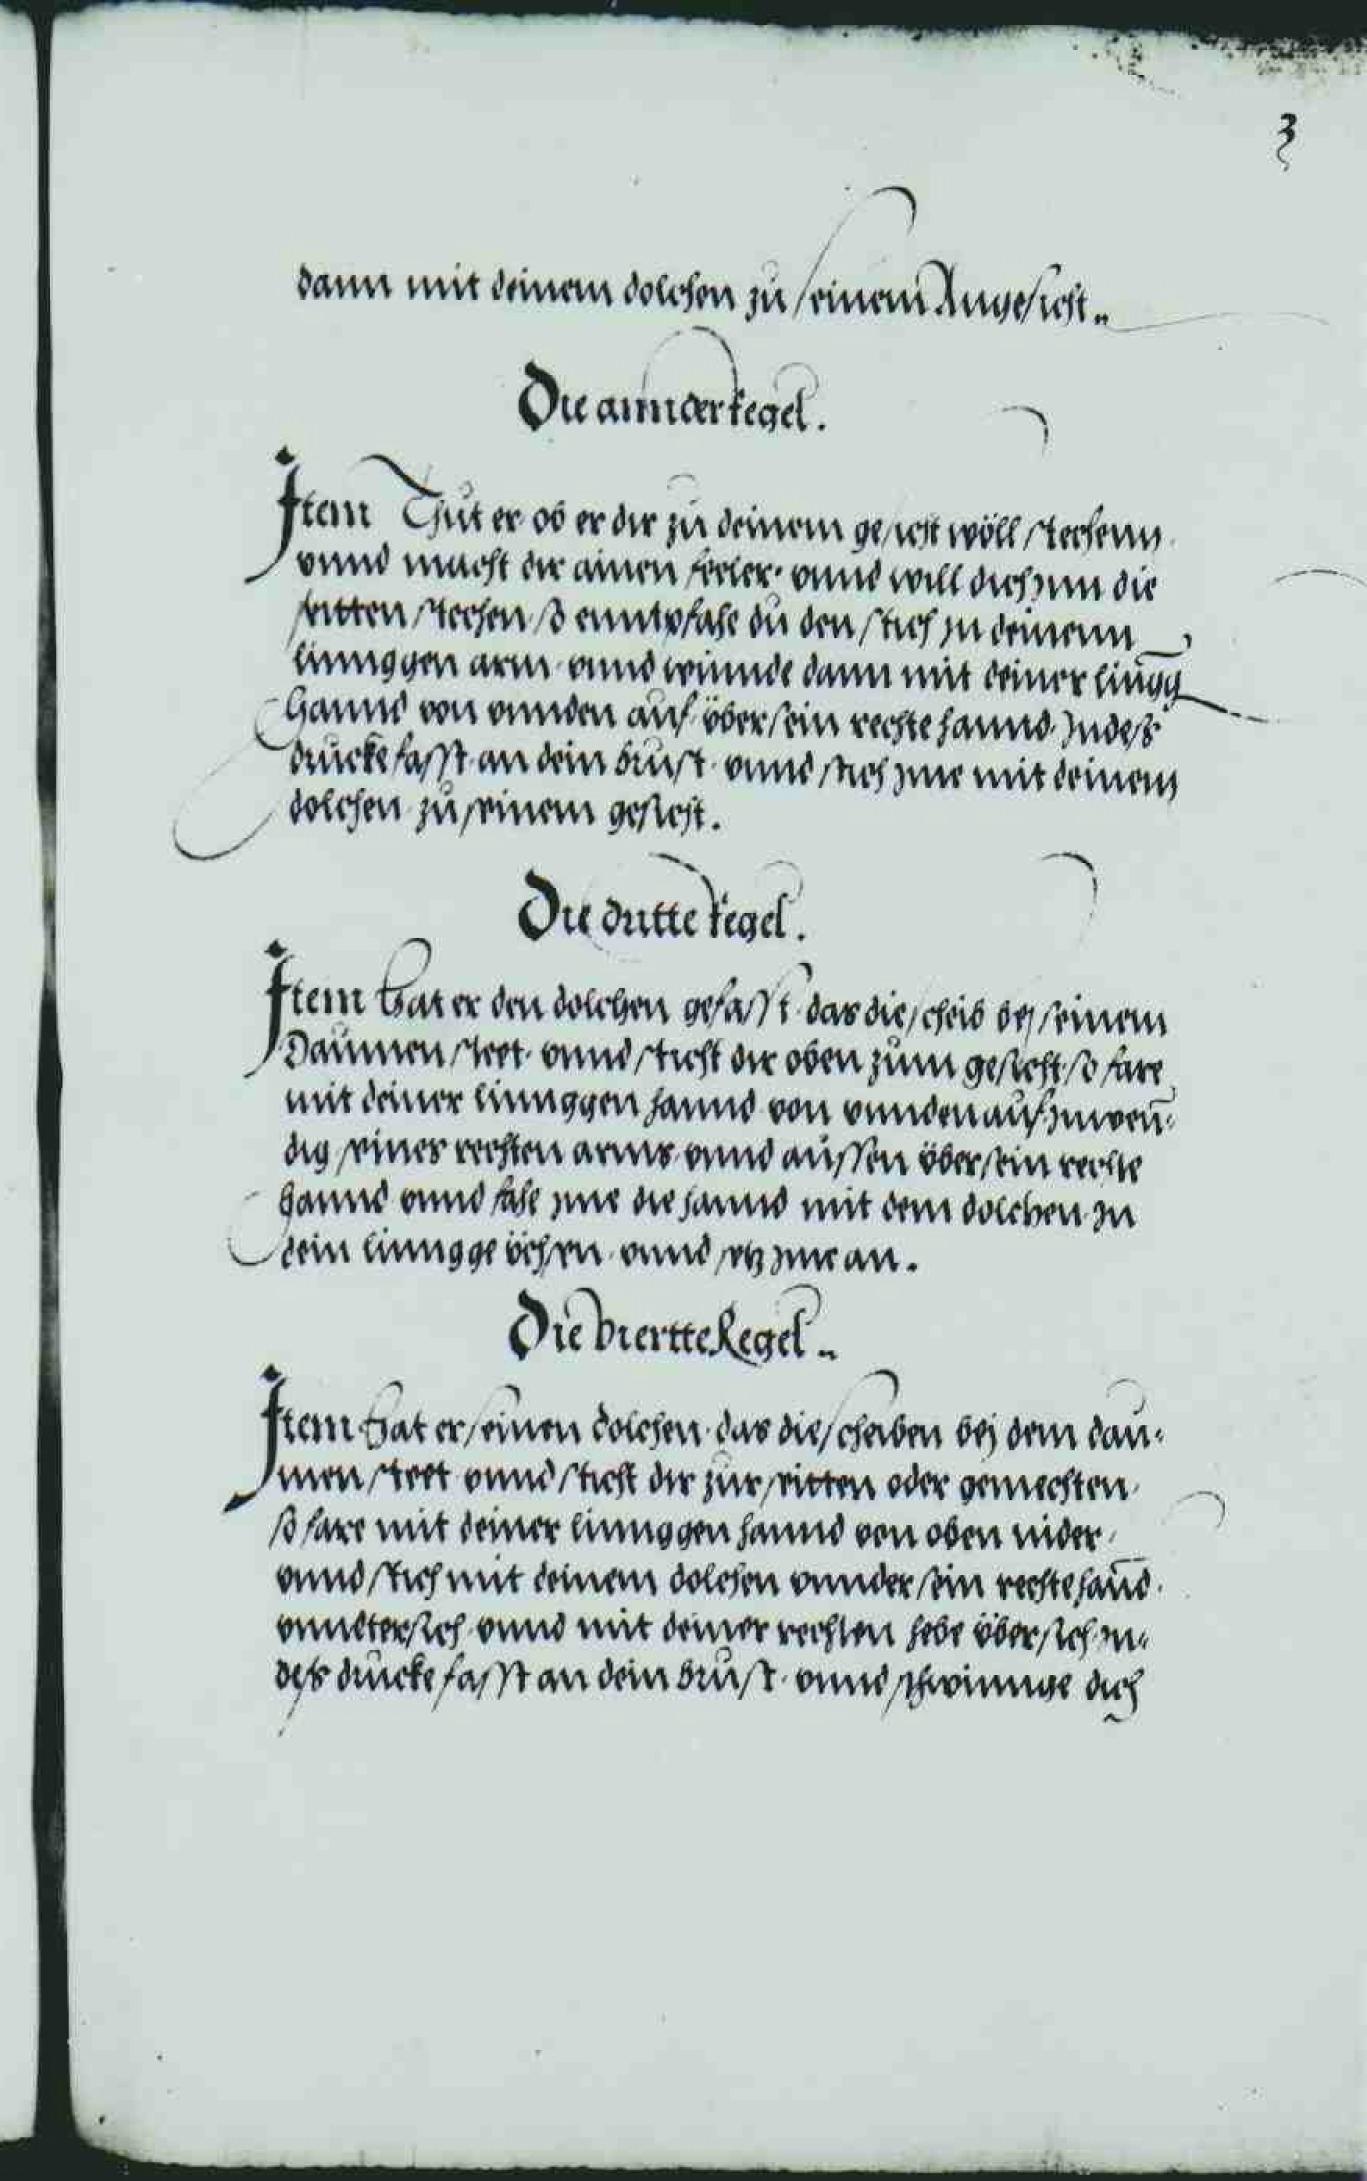 3
dann mit deinem dolchen zu seinem Angesicht„
Die annder Regel.
Item Thut er ob er dir zu deinem gesicht wöll stechenn
vnnd macht dir ainen feeler· vnnd will dich jnn die
seitten stechen so enntpfahe du den stich jn deinenn
linnggen arm· vnnd winnde dann mit deiner lin̄gg
hannd von vnnden auf· über sein rechte hannd· Jndeß
drucke fasst· an dein brust· vnnd stich jme mit deinem
dolchen zu seinem gesicht.
Die dritte Regel.
Item hat er den dolchen gefasst· das die scheib bej seinem
Daumen steet· vnnd sticht dir oben zum gesicht· so fare
mit deiner linnggen hannd von vnnden auf· jnwen̄-
dig seines rechten arms· vnnd aussen über sein rechte
hannd vnnd fahe jme die hannd mit dem dolchen jn
dein linngge üchsen· vnnd setz jme an.
Die viertte Regel„
Item hat er seinen dolchen· das die scheiben bej dem dau-
men steet vnnd sticht dir zur seitten oder gemechten·
so fare mit deiner linnggen hannd von oben nider,
vnnd stich mit deinem dolchen vnnder sein rechte han̄d·
vnndtersich· vnnd mit deiner rechten hebe übersich jn-
deß drucke fasst an dein brust· vnnd schwinnge dich